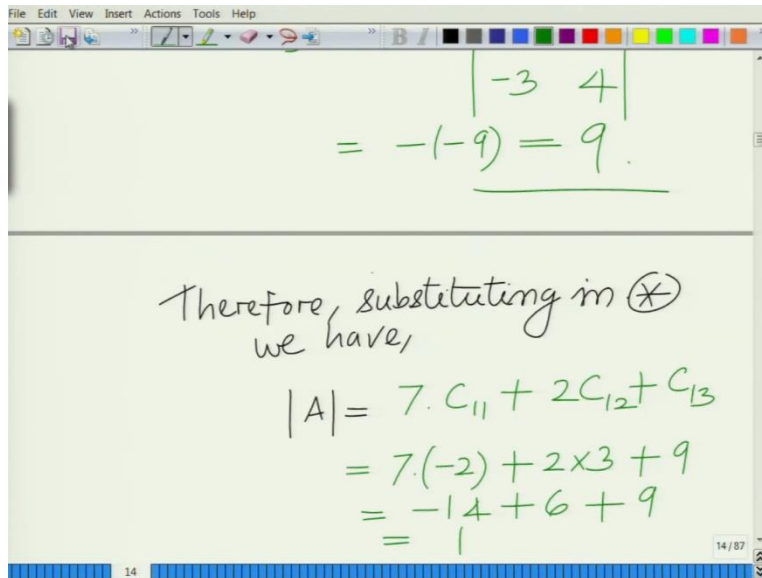 File Edit View Insert Actions Tools Help
B I
|-3 4|
= -(-9) = 9.
Therefore, substituting in ⊛
we have,
|A| = 7. C₁₁ + 2C₁₂ + C₁₃
= 7.(-2) + 2×3 + 9
= -14 + 6 + 9
= 1
14/87
14